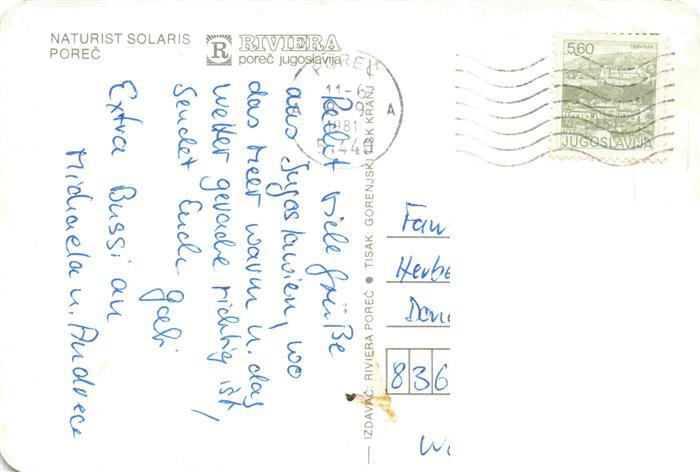 NATURIST SOLARIS
POREČ
RIVIERA
poreč jugoslavija
POREČ
11-6
9
1981
A A
560
TRAVNIK
JUGOSLAVIJA
Recht viele Grüße
aus Jugoslawien, wo
das Meer warm u. das
Wetter gerade richtig ist,
sendet Euch
Gabi
Extra Bussi an
Michaela u. Andrea
IZDAVAČ: RIVIERA POREČ ● TISAK: GORENJSKI TISK KRANJ
Fam
Herbe
Dona
836
W